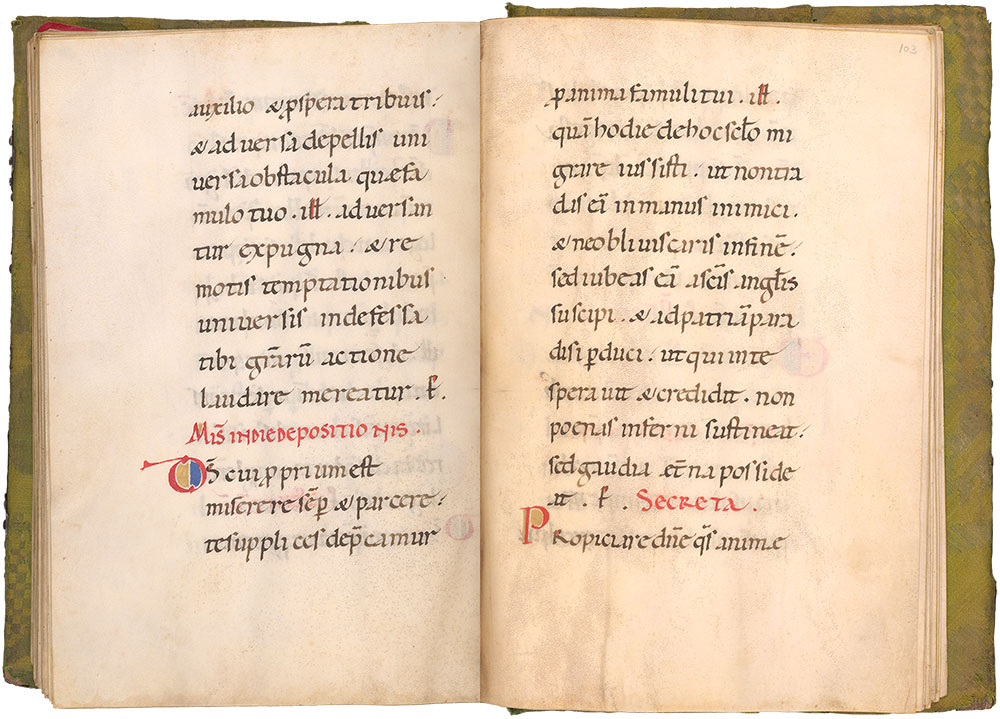 auxilio & ꝓspera tribuis ·
& adversa depellis uni
versa obstacula quæ fa
mulo tuo . ill . adversan
tur expugna . & re
motis temptationibus
universis indefessa
tibi gr̄arū actione
laudare mereatur . ꝑ .
Mis̄ in die depositionis .
Ds̄ cui ꝓprium est
miserere sēp & parcere ·
te supplices dep̄camur
103
ꝓ anima famuli tui . ill .
quā hodie de hoc scl̄o mi
grare iussisti . ut non tra
das eā in manus inimici .
& ne obliviscaris in finē ·
sed iubeas eā a sc̄is angl̄is
suscipi . & ad patriā para
disi ꝑduci . ut qui in te
speravit & credidit . non
poenas inferni sustineat .
sed gaudia et̄na posside
at . ꝑ . Secreta .
Propiciare dn̄e qs̄ animæ